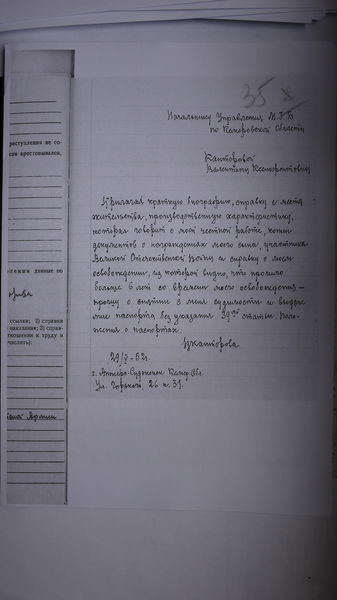 35
Начальнику Управления М.Г.Б
по Кемеровской Области
Канторовой
Валентины Ксенофонтовны
Прилагая краткую биографию, справку с места
жительства, производственную характеристику,
которая говорит о моей честной работе, копии
документов о награждениях моего сына, участника
Великой Отечественной Войны и справку о моем
освобождении, из которой видно, что прошло
больше 6 лет со времени моего освобождения –
прошу о снятии с меня судимости и выдаче
мне паспорта без указания 39ой статьи Поло-
жения о паспортах.
ВКанторова
29/V-52г.
г. Анжеро-Судженск Кемер. Обл.
ул. Горького, 26 к. 31.
реступления не со-
арестовывался,
данные во
ссылки; 2) справки
наказания; 3) справ-
тношении к труду и
числить):